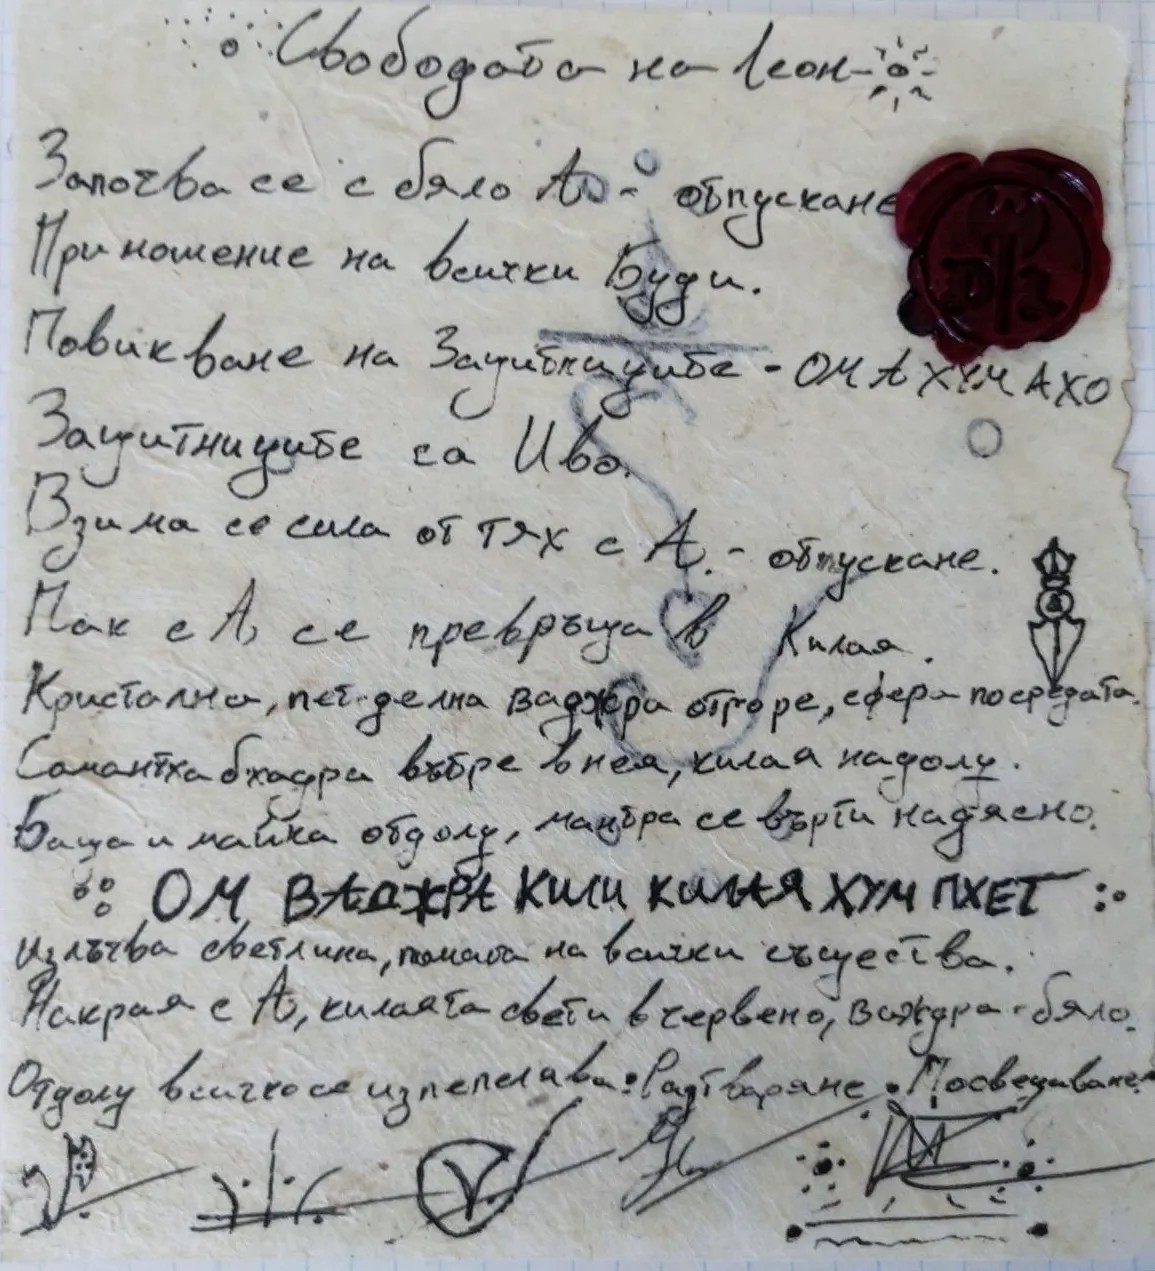 Свободата на Леон
Започва се с бяло А - отпускане
Приношение на всички Буди.
Повикване на Защитниците - ОМ А ХУМ АХО
Защитниците са Иво.
Взима се сила от тях с А. - отпускане.
Пак с А, се превръща в Килая.
Кристална, пет-делна ваджра отгоре, сфера посредата.
Самантхабхадра вътре в нея, килая надолу.
Баща и майка отдолу, мантра се върти надясно.
ОМ ВАДЖРА КИЛИ КИЛАЯ ХУМ ПХЕТ
Излъчва светлина, помага на всички същества.
Накрая с А, килаята свети в червено, ваджра - бяло.
Отдолу всичко се изпепелява. Разтваряне. Посвещаване.